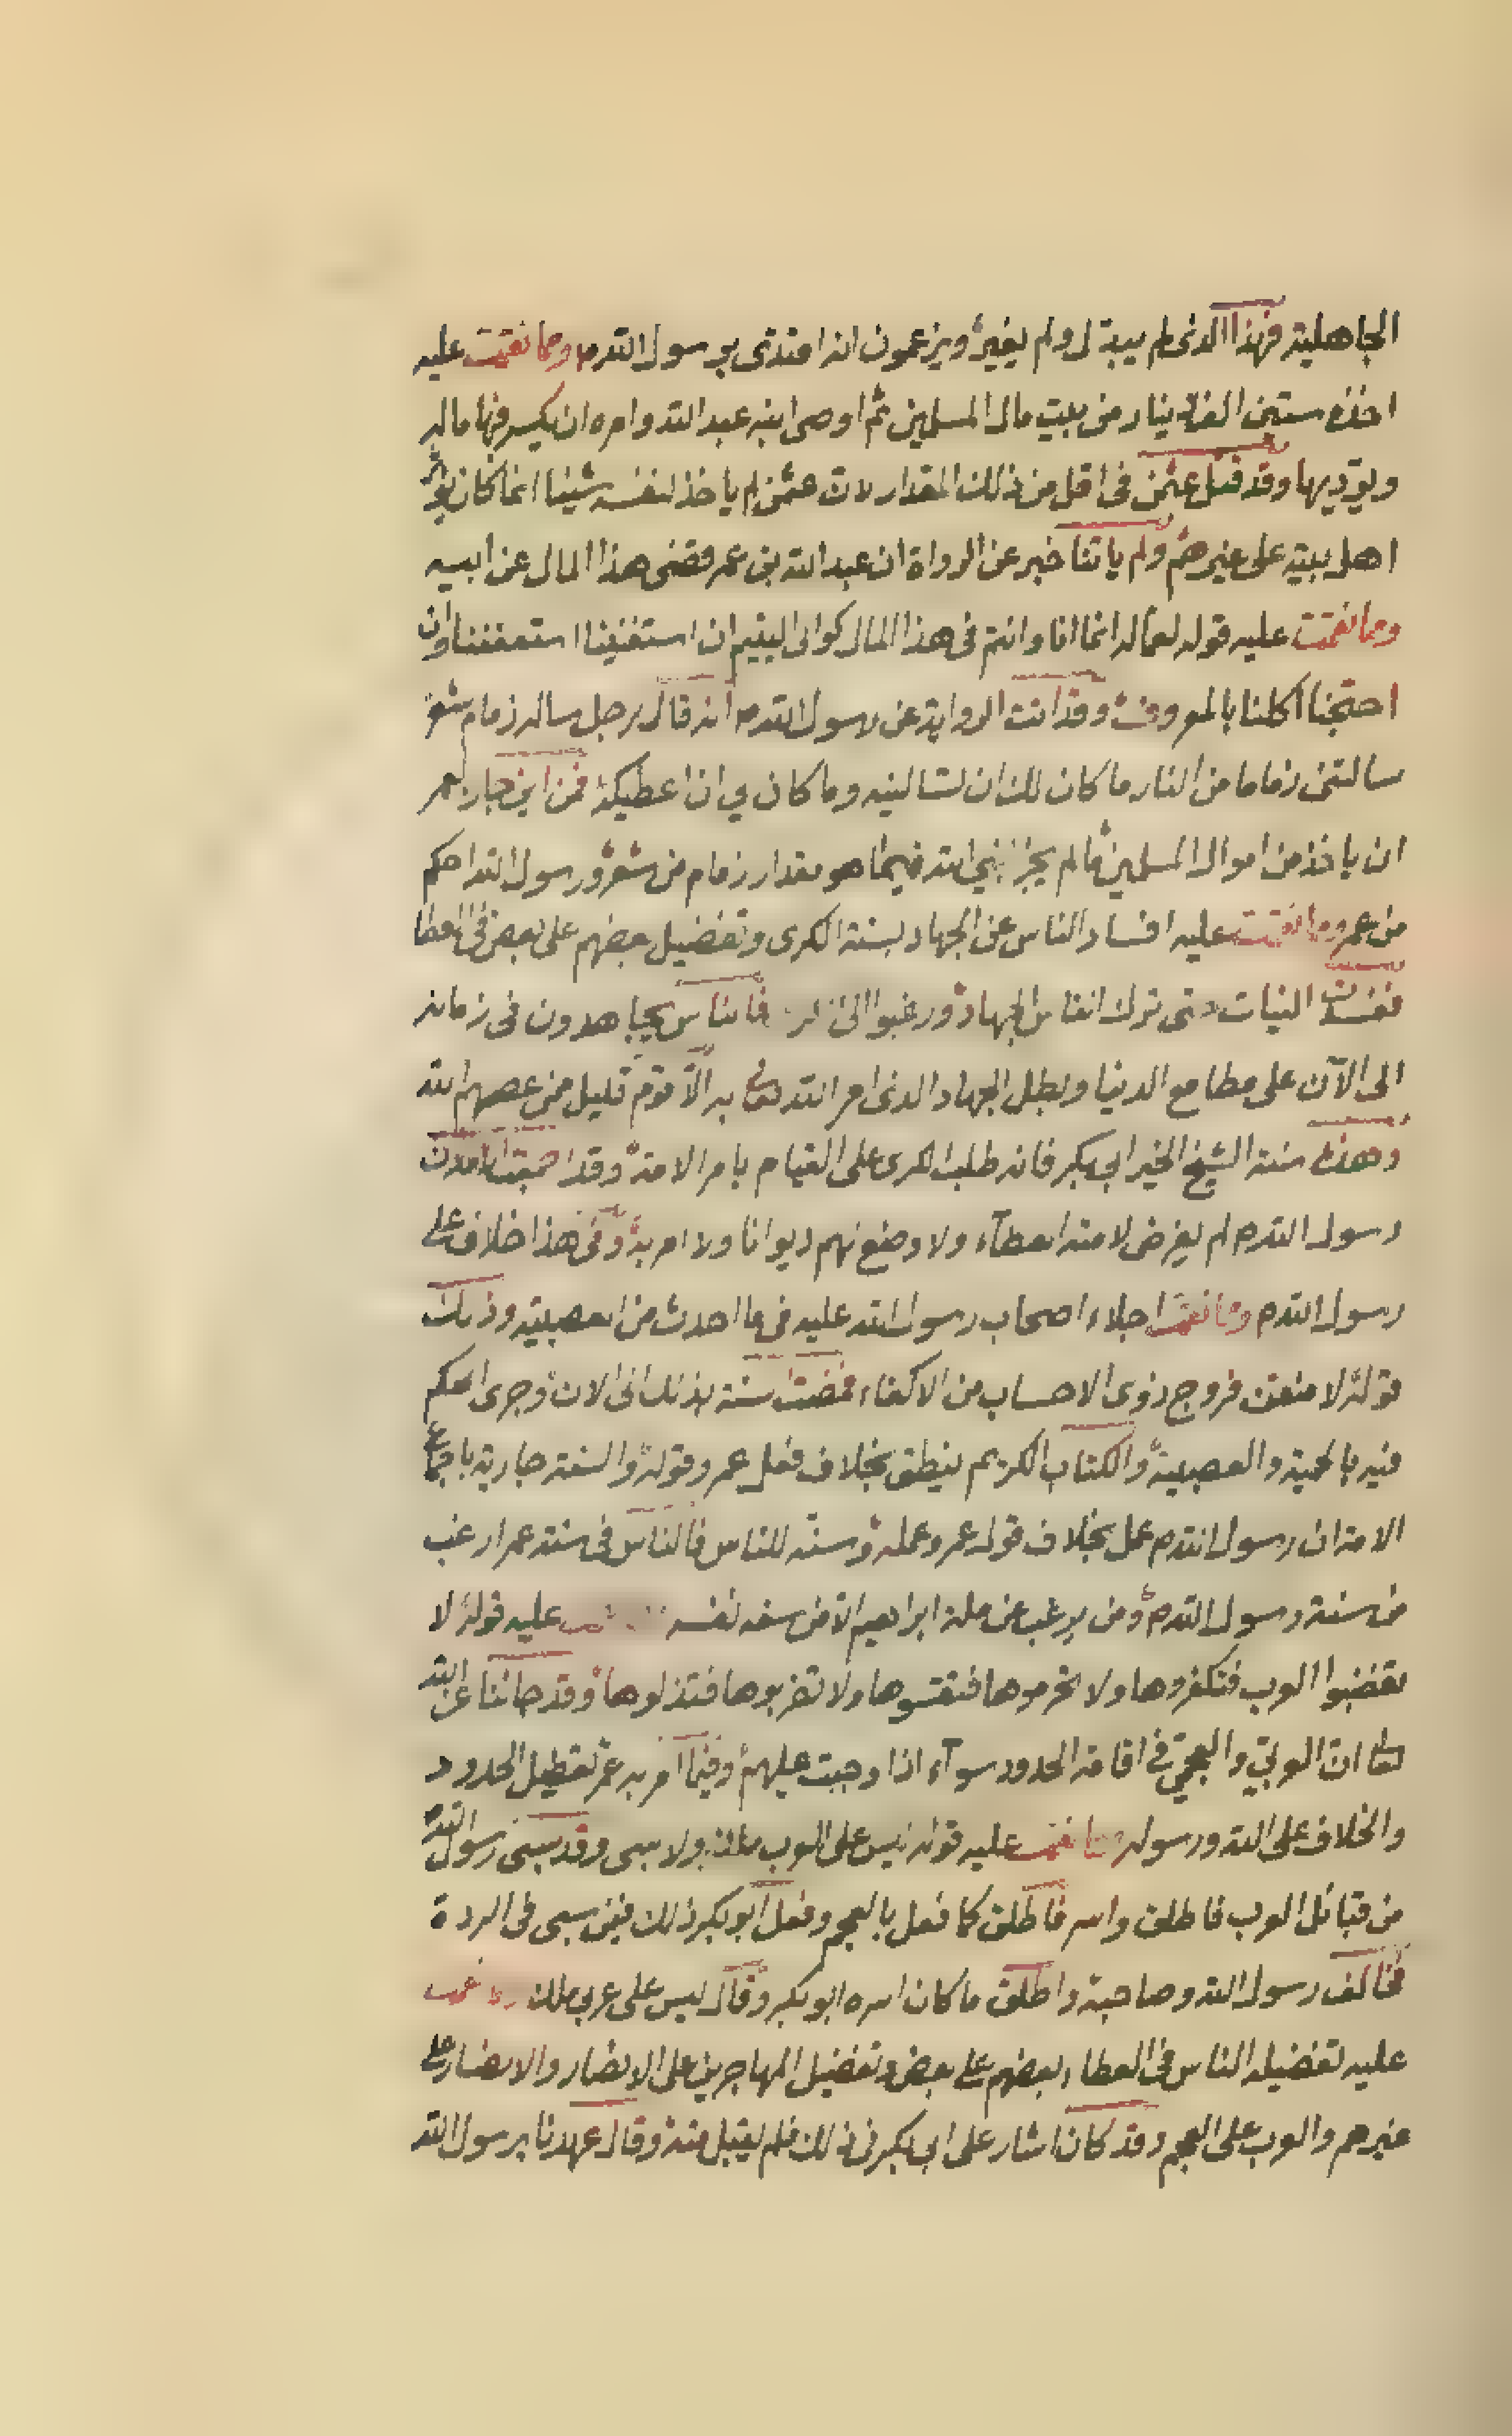 الجاهلية فهذا الذى لم يبدل ولم يغير ويزعمون انه اقتدى برسول الله ص ومما نقمت عليه
اخذه ستين الف دينار من بيت مال المسلمين ثم اوصى ابنه عبد الله وامره ان يكسر فيها ماله
ويؤديها وقد قتل عثمن فى اقل من ذلك المقدار لان عثمن لم ياخذ لنفسه شيئا انما كان يؤثر
اهل بيته على غيرهم ولم ياتنا خبر عن الرواة ان عبد الله بن عمر قضى هذا المال عن ابيه
ومما نقمت عليه قوله لعماله انما انا وانتم فى هذا المال كوالى اليتيم ان استغنينا استعففنا وان
احتجنا اكلنا بالمعروف وقد اتت الرواية عن رسول الله ص انه قال لرجل ساله زمام شعر
سالتنى زماما من النار ما كان لك ان تسالنيه وما كان لي ان اعطيكه فمن اين جاز لعمر
ان ياخذ من اموال المسلمين ما لم يجز لنبي الله فيما هو مقدار زمام من شعر ورسول الله احكم
من عمر ومما نقمت عليه افساد الناس عن الجهاد بسنة الكرى وتفضيل بعضهم على بعض فى العطا
ففسدت النيات حتى ترك الناس الجهاد ورغبوا الى فالناس يجاهدون فى زمانه
الى الآن على مطامع الدنيا وبطل الجهاد الذى امر الله تعالى به الا قوم قليل ممن عصمهم الله
وهذه سنة الشيخ الخير ابي بكر فانه طلب الكرى على القيام بامر الامة وقد اجمعت الامة ان
رسول الله ص لم يفرض لامته العطآء ولا وضع لهم ديوانا ولا امر به وفى هذا خلاف على
رسول الله ص ومما نقمت اجلاء اصحاب رسول الله عليه فى ما احدث من العصبية وذلك
قوله لامنعن فروج ذوى الاحساب من الاكفاء فمضت سنة بذلك الى الان وجرى الحكم
فيه بالحمية والعصبية والكتاب الكريم ينطق بخلاف فعل عمر وقوله والسنة جارية باجماع
الامة ان رسول الله ص عمل بخلاف قول عمر وعمله وسنه للناس فالناس فى سنة عمر ارغب
من سنة رسول الله ص ومن يرغب عن ملة ابراهيم الا من سفه نفسه عليه قوله لا
تغضبوا العرب فتكفروها ولا تحرموها فتفتنوها ولا تضربوها فتذلوها وقد جائنا عن الله
تعا ان العربيّ والعجميّ في اقامة الحدود سوآء اذا وجبت عليهم وفيما امر به عمر تعطيل الحدود
والخلاف على الله ورسوله ومما نقمت عليه قوله ليس على العرب ملك ولا سبى وقد سبى رسول الله ص
من قبائل العرب فاطلق واسر فاطلق كما فعل بالعجم وفعل ابو بكر ذلك فيمن سبى فى الردة
فخالف رسول الله وصاحبه واطلق ما كان اسره ابو بكر وقال ليس على عربى ملك ومما نقمت
عليه تفضيله الناس فى العطاء بعضهم على بعض وتفضيل المهاجرين على الانصار والانصار على
غيرهم والعرب على العجم وقد كان اشار على ابى بكر فى ذلك فلم يقبل منه وقال عهدنا برسول الله